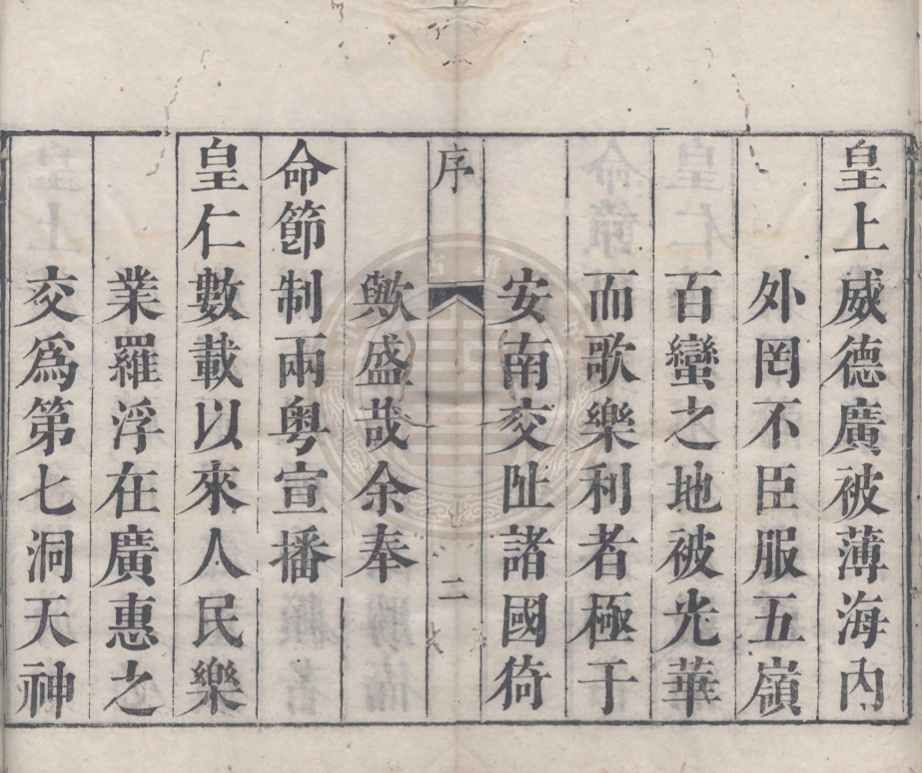 皇上威德廣被薄海内
外罔不臣服五嶺
百蠻之地被光華
而歌樂利者極于
安南交阯諸國猗
歟盛哉余奉
序
二
命節制兩粤宣播
皇仁數載以來人民樂
業羅浮在廣惠之
交爲第七洞天神